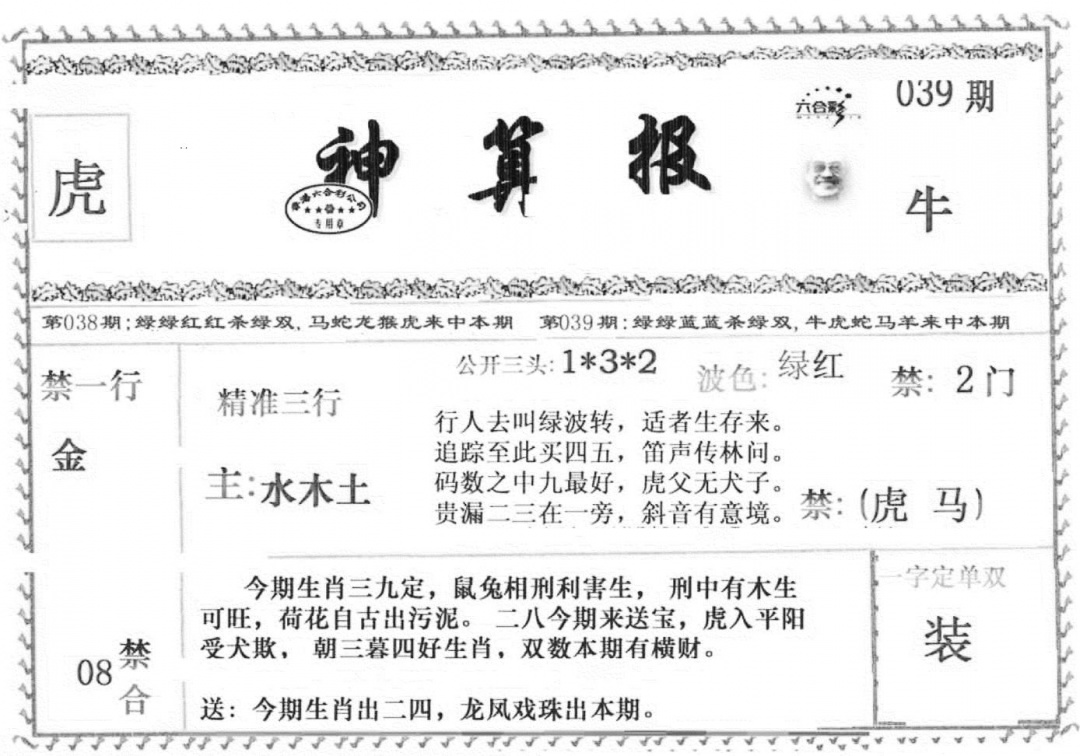 039 期
六合彩
虎
神算报
香港六合彩公司
专用章
牛
第038期:绿绿红红杀绿双,马蛇龙猴虎来中本期 第039期:绿绿蓝蓝杀绿双,牛虎蛇马羊来中本期
禁一行
金
精准三行
主:水木土
公开三头:1*3*2
波色:绿红
禁:2门
行人去叫绿波转,适者生存来。
追踪至此买四五,笛声传林问。
码数之中九最好,虎父无犬子。
贵漏二三在一旁,斜音有意境。
禁:(虎 马)
08禁合
今期生肖三九定,鼠兔相刑利害生, 刑中有木生
可旺,荷花自古出污泥。 二八今期来送宝,虎入平阳
受犬欺, 朝三暮四好生肖,双数本期有横财。
送:今期生肖出二四,龙凤戏珠出本期。
一字定单双
装